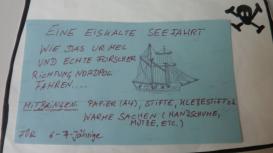 EINE EISKALTE SEEFAHRT
WIE DAS URMEL
UND ECHTE FORSCHER
RICHTUNG NORDPOL
FAHREN....
MITBRINGEN: PAPIER (A4), STIFTE, KLEBESTIFT
WARME SACHEN (HANDSCHUHE,
MÜTZE, ETC.)
FÜR 6-7-Jährige